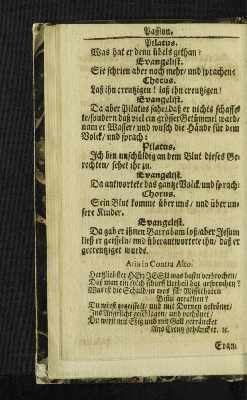 Passion.
Pilatus.
Was hat er denn übels gethan?
Evangelist.
Sie schrien aber noch mehr/ und sprachen:
Chorus.
Laß ihn creutzigen! laß ihn creutzigen!
Evangelist.
Da aber Pilatus sahe/daß er nichts schaffe-
te/sondern daß viel ein grösser Getümmel ward/
nam er Wasser/ und wusch die Hände für dem
Volck/ und sprach:
Pilatus.
Ich bin unschüldig an dem Blut dieses Ge-
rechten/ sehet ihr zu.
Evangelist.
Da antwortete das gantze Volck/und sprach:
Chorus.
Sein Blut komme über uns/ und über un-
sere Kinder.
Evangelist.
Da gab er ihnen Barrabam loß/aber Jesum
ließ er geisseln/ und überantwortete ihn/ daß er
gecreutziget würde.
Aria in Contra Alto.
Hertzliebster HErr JESU was hastu verbrochen/
Daß man ein solch scharff Urtheil hat gesprochen?
Was ist die Schuld/in was für Missethaten
Bistu gerathen?
Du wirst gegeisselt/ und mit Dornen gekrönet/
Ins Angesicht geschlagen/ und verhönet/
Du wirst mit Essig und mit Gall getråncket
Ans Creutz gehåncket. ꝛc.
Evan-